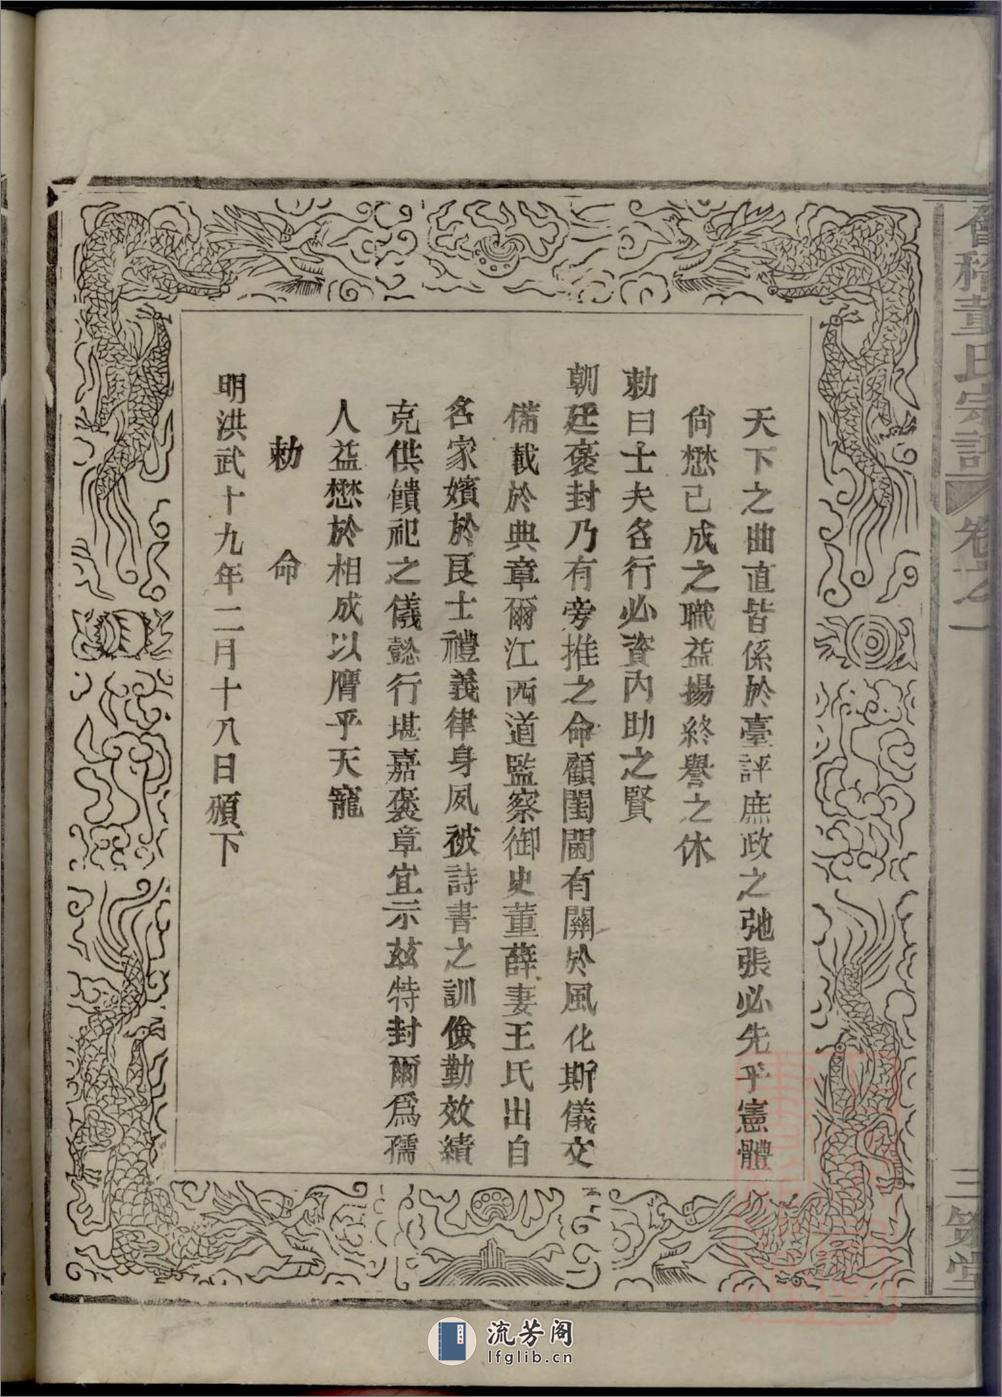 會稽董氏宗譜
卷之一
三策堂
天下之曲直皆係於臺評庶政之弛張必先乎憲體
尙懋已成之職益揚終譽之休
勅曰士夫各行必資內助之賢
朝廷褒封乃有旁推之命顧閨閫有關於風化斯儀文
備載於典章爾江西道監察御史董薛妻王氏出自
名家嬪於良士禮義律身夙被詩書之訓儉勤效績
克供饋祀之儀懿行堪嘉褒章宜示玆特封爾爲孺
人益懋於相成以膺乎天寵
勅命
明洪武十九年二月十八日頒下
流芳阁
lfglib.cn